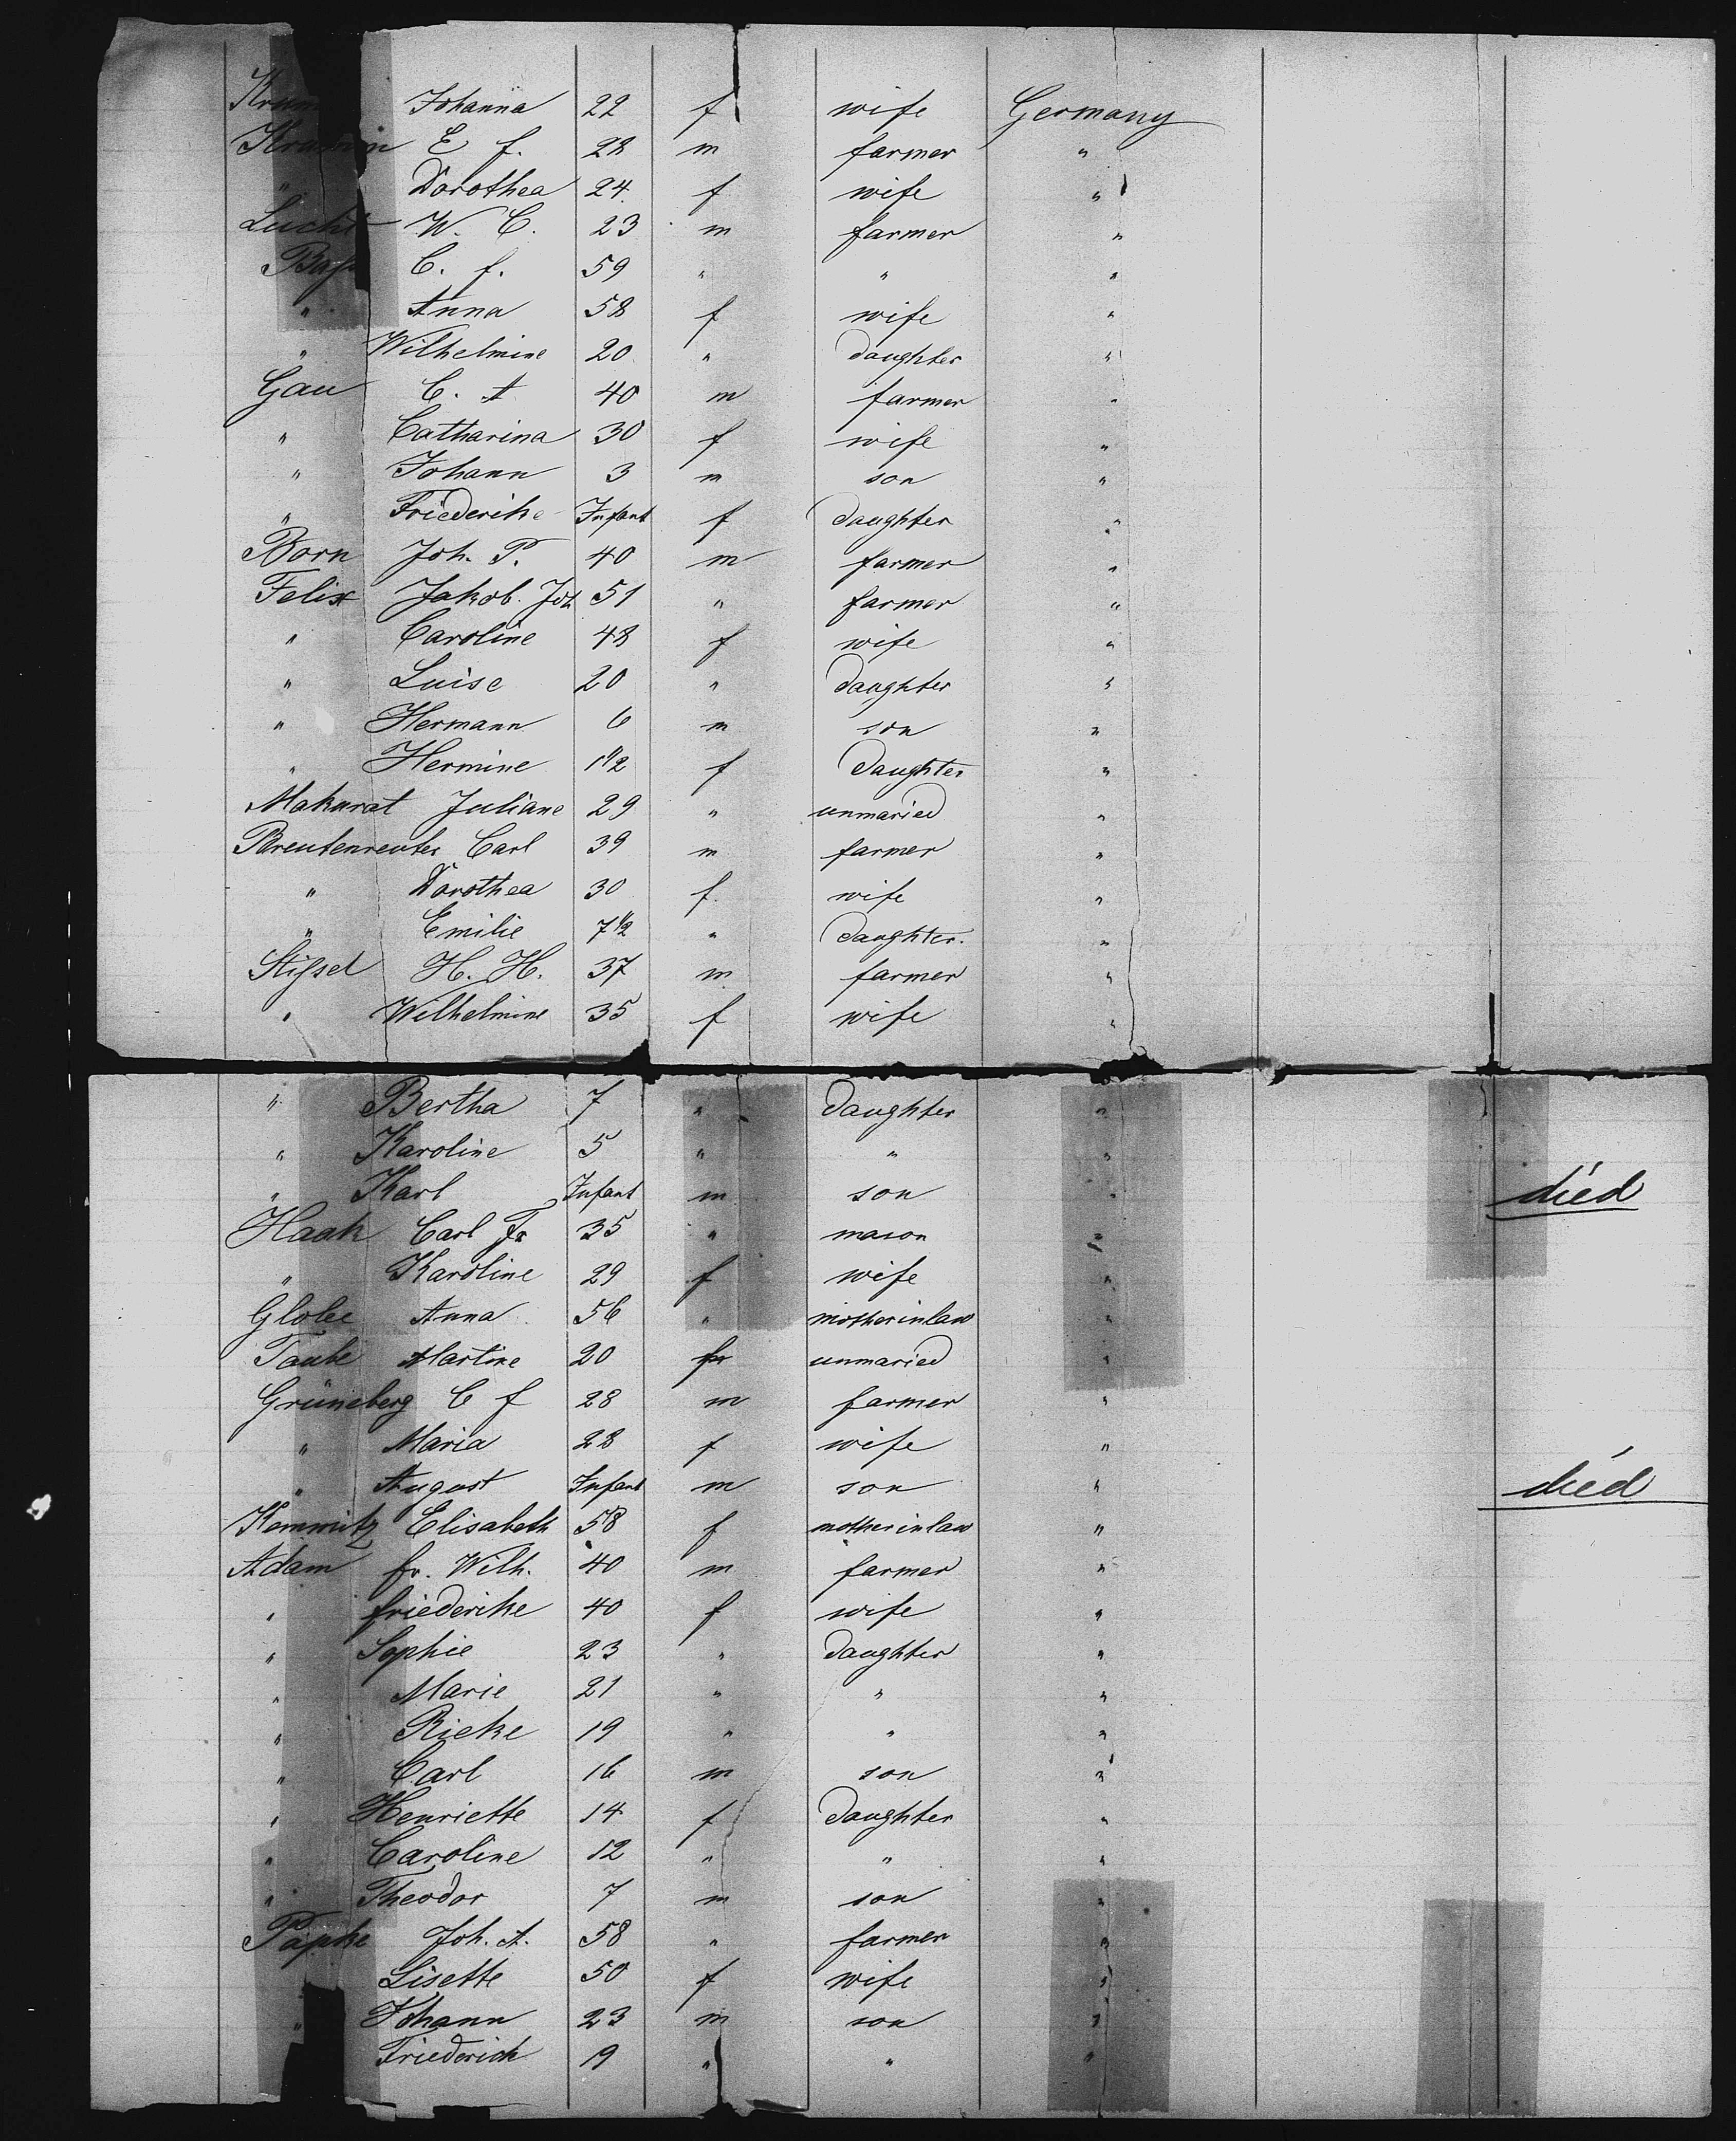 Johanna 22 f wife Germany
E f. 28 m farmer "
" Dorothea 24. f wife "
Lucht W. C. 23 m farmer "
C. f. 59 " " "
" Anna 58 f wife "
" Wilhelmine 20 " daughter "
Gau C. A 40 m farmer "
" Catharina 30 f wife "
" Johann 3 m son "
" Friederike Infant f daughter "
Born Joh. P. 40 m farmer "
Felix Jakob. Joh 51 " farmer "
" Caroline 48 f wife "
" Luise 20 " daughter "
" Hermann 6 m son "
" Hermine 1 1/2 f daughter "
Makurat Juliane 29 " unmaried "
Breutenreuter Carl 39 m farmer "
" Dorothea 30 f. wife "
" Emilie 7 1/2 " daughter. "
Stifsel H. H. 37 m farmer "
" Wilhelmine 35 f wife "
" Bertha 7 " daughter "
" Karoline 5 " " "
" Karl Infant m son " died
Haak Carl Fr 35 " mason "
" Karoline 29 f wife "
Anna 56 " motherinlaw "
Taube Martine 20 unmaried "
Grüneberg C f 28 m farmer "
" Maria 28 f wife "
" August Infant m son " died
Elisabeth 58 f motherinlaw "
Adam fr. Wilh. 40 m farmer "
" friederike 40 f wife "
" Sophie 23 " daughter "
" Marie 21 " " "
" Rieke 19 " " "
" Carl 16 m son "
" Henriette 14 f daughter "
" Caroline 12 " " "
" Theodor 7 m son "
Papke Joh. A. 58 " farmer "
Lisette 50 f wife "
" Johann 23 m son "
Friederich 19 " " "